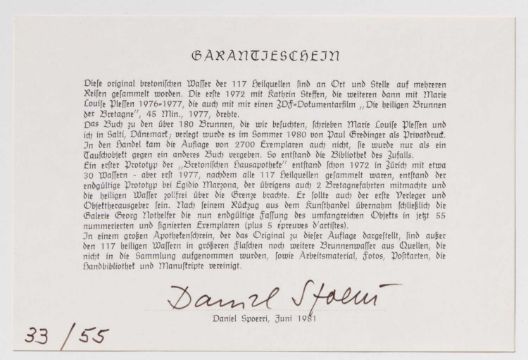 GARANTIESCHEIN
Diese original bretonischen Wasser der 117 Heilquellen sind an Ort und Stelle auf mehreren
Reisen gesammelt worden. Die erste 1972 mit Kathrin Steffen, die weiteren dann mit Marie
Louise Plessen 1976-1977, die auch mit mir einen ZDF-Dokumentarfilm „Die heiligen Brunnen
der Bretagne", 45 Min., 1977, drehte.
Das Buch zu den über 180 Brunnen, die wir besuchten, schrieben Marie Louise Plessen und
ich in Salti, Dänemark; verlegt wurde es im Sommer 1980 von Paul Gredinger als Privatdruck.
In den Handel kam die Auflage von 2700 Exemplaren auch nicht, sie wurde nur als ein
Tauschobjekt gegen ein anderes Buch vergeben. So entstand die Bibliothek des Zufalls.
Ein erster Prototyp der „Bretonischen Hausapotheke" entstand schon 1972 in Zürich mit etwa
30 Wassern - aber erst 1977, nachdem alle 117 Heilquellen gesammelt waren, entstand der
endgültige Prototyp bei Egidio Marzona, der übrigens auch 2 Bretagnefahrten mitmachte und
die heiligen Wasser zollfrei über die Grenze brachte. Er sollte auch der erste Verleger und
Objektherausgeber sein. Nach seinem Rückzug aus dem Kunsthandel übernahm schließlich die
Galerie Georg Nothelfer die nun endgültige Fassung des umfangreichen Objekts in jetzt 55
nummerierten und signierten Exemplaren (plus 5 épreuves d'artistes).
In einem großen Apothekenschrein, der das Original zu dieser Auflage darstellt, sind außer
den 117 heiligen Wassern in größeren Flaschen noch weitere Brunnenwasser aus Quellen, die
nicht in die Sammlung aufgenommen wurden, sowie Arbeitsmaterial, Fotos, Postkarten, die
Handbibliothek und Manuskripte vereinigt.
Daniel Spoerri
Daniel Spoerri, Juni 1981
33/55